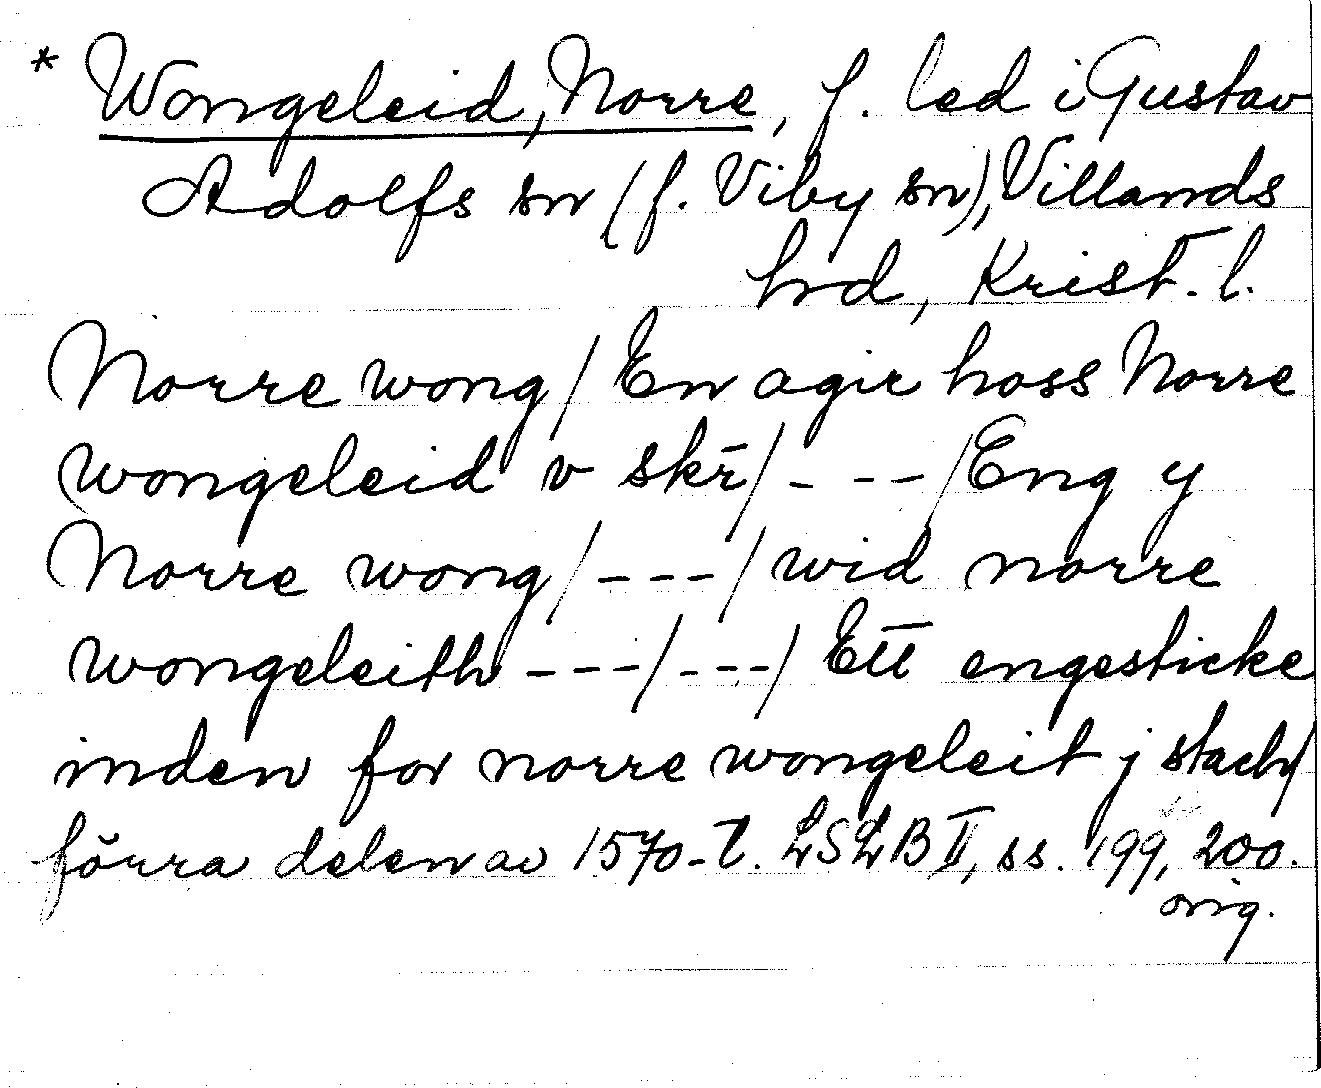 * Wongeleid, Norre, f. led i Gustav
Adolfs sn (f. Viby sn), Villands
hd, Krist. l.
Norre wong / En agir hoss Norre
wongeleid v skr̄ / - - - / Eng y
Norre wong / - - - / wid norre
wongeleith - - - / - - - / Ett engesticke
inden for norre wongeleit j stach /
förra delen av 1570-t. LSLB II, ss. 199, 200.
orig.